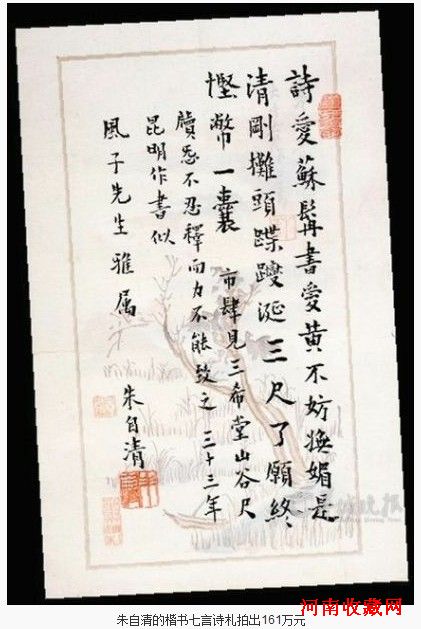 詩愛蘇髯書愛黃不妨嫵媚是
清剛攤頭蹀躞涎三尺了願終
慳幣一囊 市肆見三希堂山谷尺
牘愛不忍釋而力不能致之 三十三年
昆明作書似
風子先生雅属
朱自清
河南收藏网
朱自清的楷书七言诗札拍出161万元